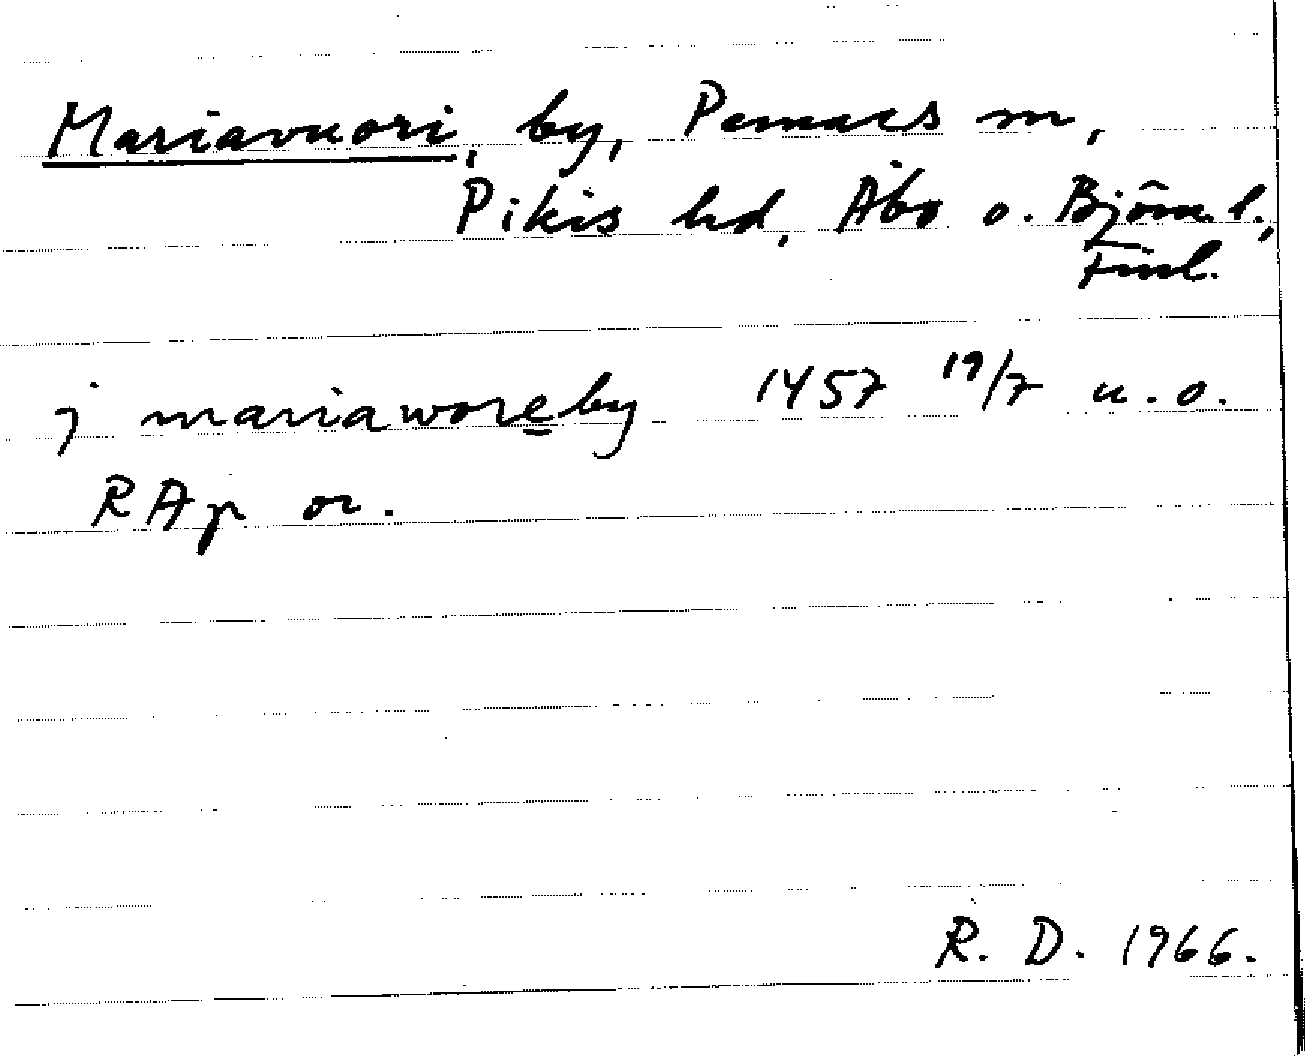 Mariavuori, by, Pemars sn,
Pikis hd, Åbo o. Björn. l.,
Finl.
j mariaworeby 1457 19/7 u.o.
RAp or.
R. D. 1966.